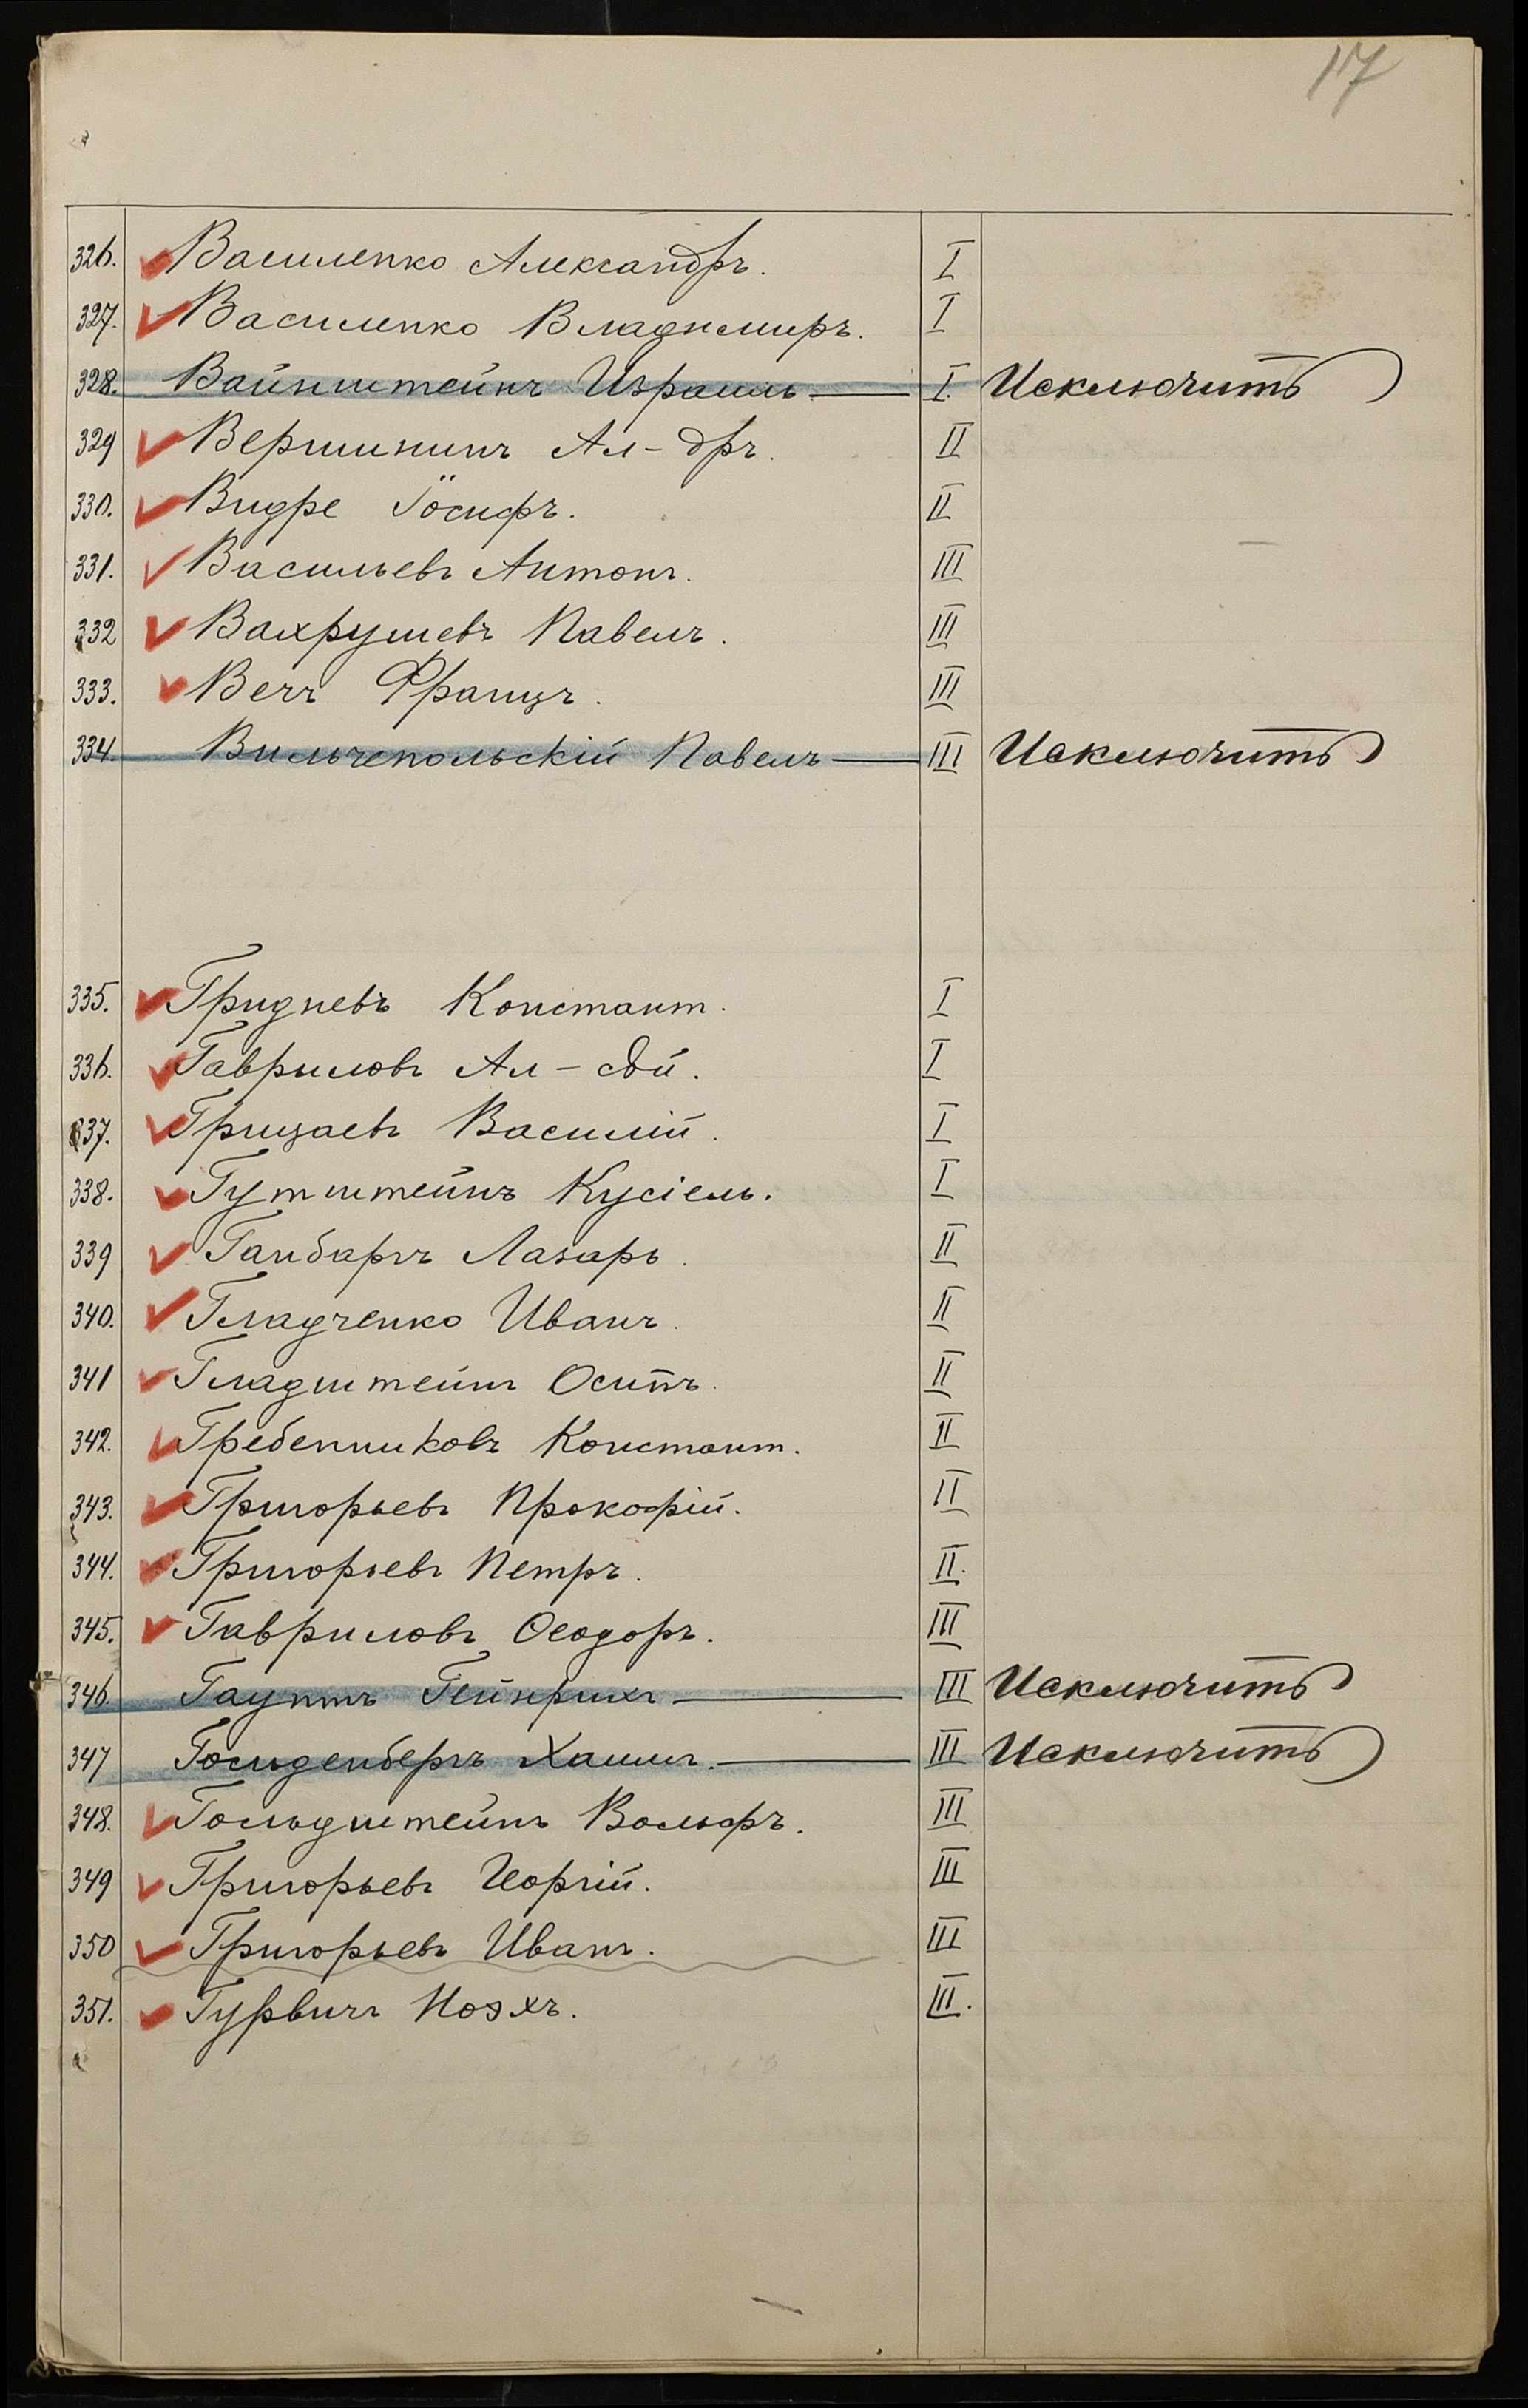 17
326. Василенко Александръ. I
327. Василенко Владимиръ. I
328. Вайнштейнъ Израиль I. Исключить
329 Вершининъ Ал-дръ. II
330. Видре Іосифъ. II
331. Васильевъ Антонъ. III
332 Вахрушевъ Павелъ. III
333. Вечъ Францъ. III
334. Вильчепольскій Павелъ III Исключить
335. Гридневъ Констант. I
336. Гавриловъ Ал-ѣй. I
337. Грицаевъ Василій. I
338. Гутштейнъ Кусіель. I
339 Ганбаргъ Лазарь. II
340. Гладченко Иванъ. II
341 Гладштейнъ Осипъ. II
342. Гребенниковъ Констант. II
343. Григорьевъ Прокофій. II
344. Григорьевъ Петръ. II.
345. Гавриловъ Ѳеодоръ. III
346. Гауптъ Гейнрихъ III Исключить
347 Гольденбергъ Хаимъ. III Исключить
348. Гольдштейнъ Вольфъ. III
349 Григорьевъ Георгій. III
350 Григорьевъ Иванъ. III
351. Гурвичъ Ноэхъ. III.